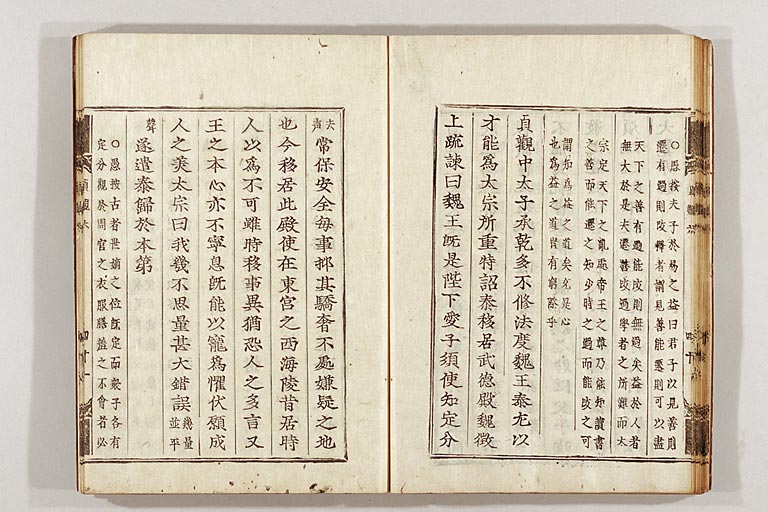 ○愚按夫子於易之益曰君子以見善則
遷有過則改釋者謂見善能遷則可以盡
天下之善有過能改則無過矣益於人者
無大於是夫遷善改過學者之所難而太
宗定天下之亂處帝王之尊乃能知讀書
之善而能遷之知少時之過而能改之可
謂知爲益之道矣充是心
也爲益之道豈有窮際乎
貞觀中太子承乾多不修法度魏王泰尤以
才能爲太宗所重特詔泰移居武德殿魏徵
上疏諫曰魏王旣是陛下愛子須使知定分
去声常保安全每事抑其驕奢不處嫌疑之地
也今移居此殿使在東宮之西海陵昔居時
人以爲不可雖時移事異猶恐人之多言又
王之本心亦不寧息旣能以寵爲懼伏願成
人之美太宗曰我幾不思量甚大錯誤幾量並平
聲遂遣泰歸於本第
○愚按古者世嫡之位旣定而衆子各有
定分觀於周官之衣服膳羞之不會者必